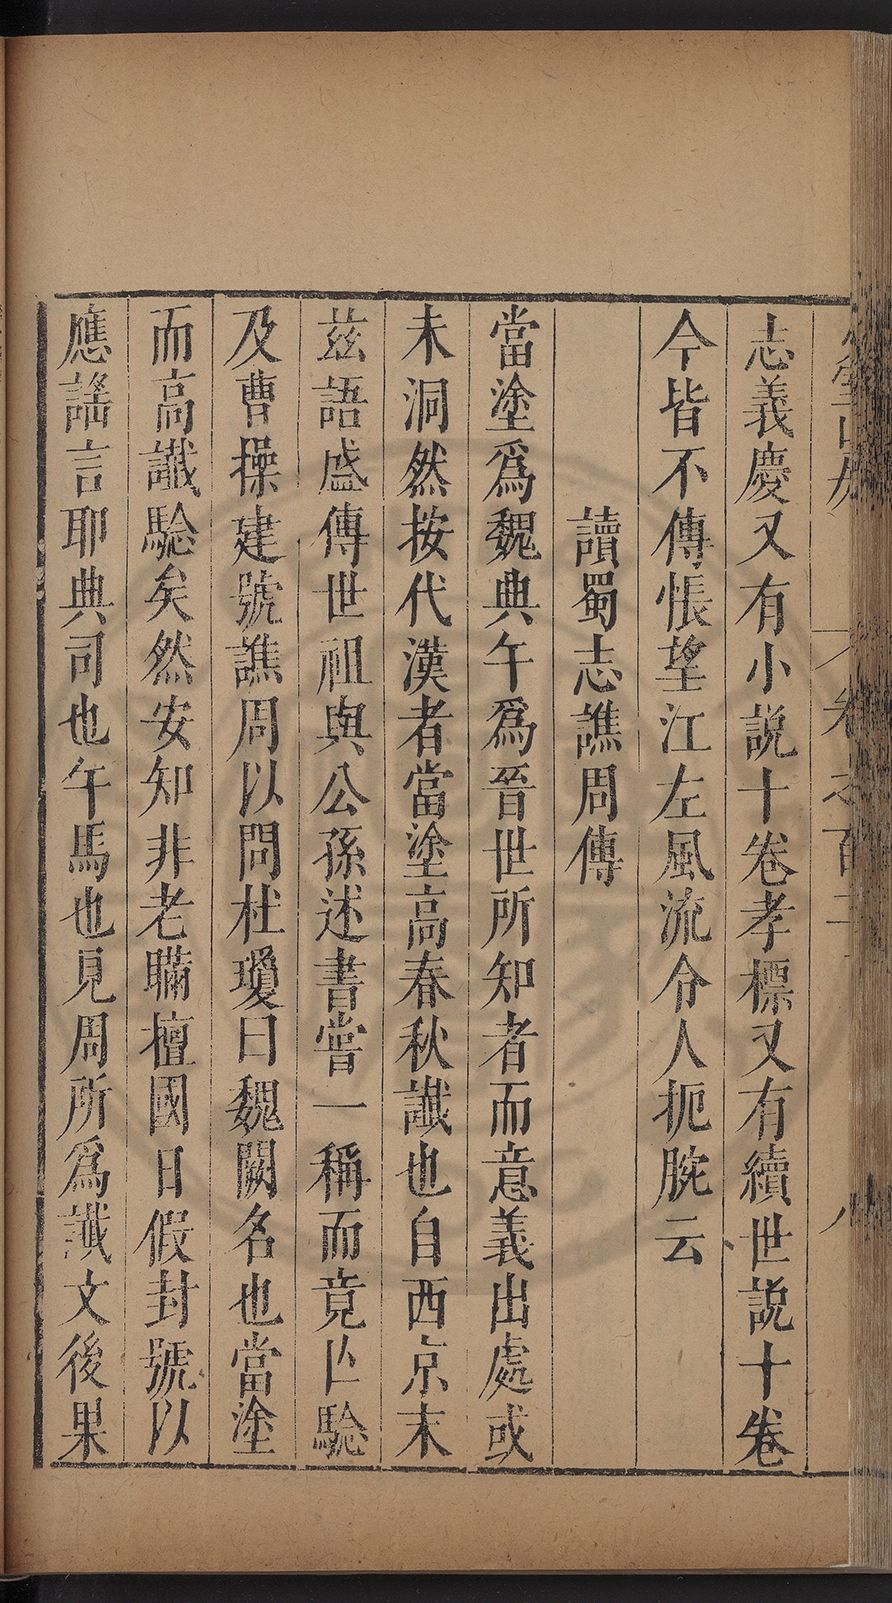 志義慶又有小説十卷孝標又有續世説十卷
今皆不傳悵望江左風流令人扼腕云
讀蜀志譙周傳
當塗爲魏典午爲晉世所知者而意義出處或
未洞然按代漢者當塗高春秋讖也自西京末
茲語盛傳世祖與公孫述書嘗一稱而竟亾驗
及曹操建號譙周以問杜瓊曰魏闕名也當塗
而高讖驗矣然安知非老瞞擅國日假封號以
應謠言耶典司也午馬也見周所爲讖文後果